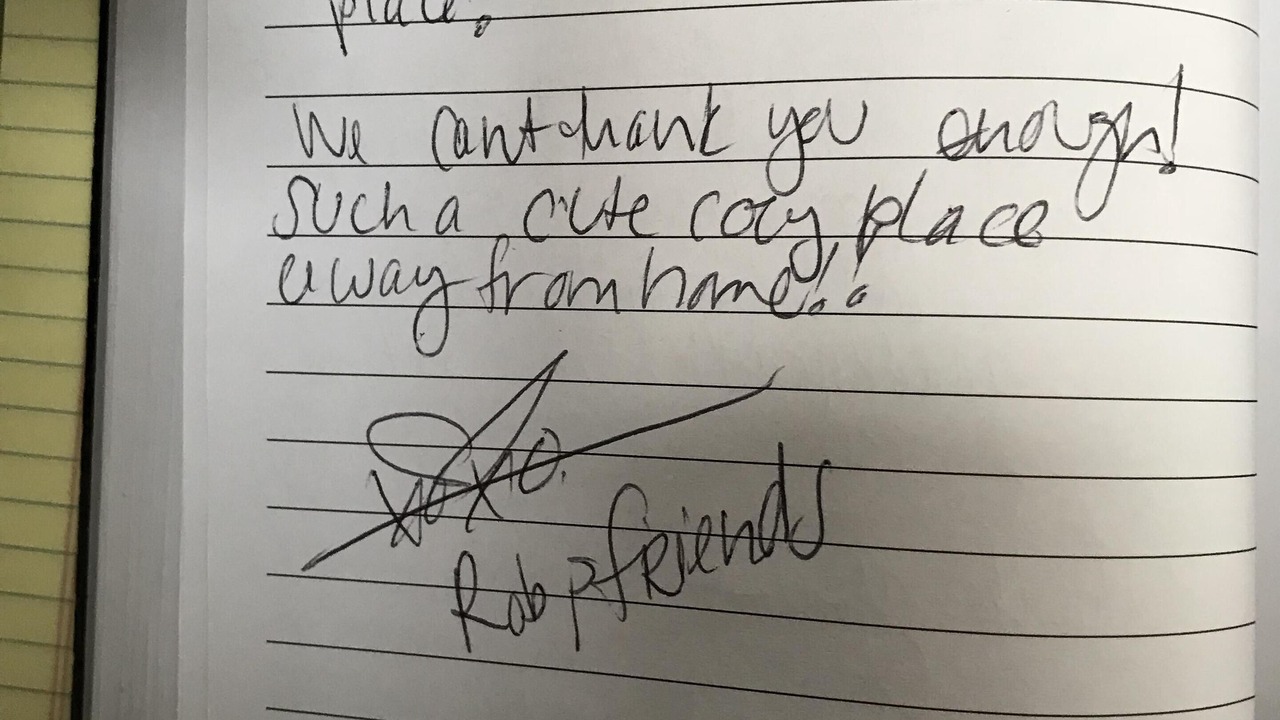 place.
We cant thank you enough!
Such a cute cozy place
away from home!!
XoXo.
Rob friends